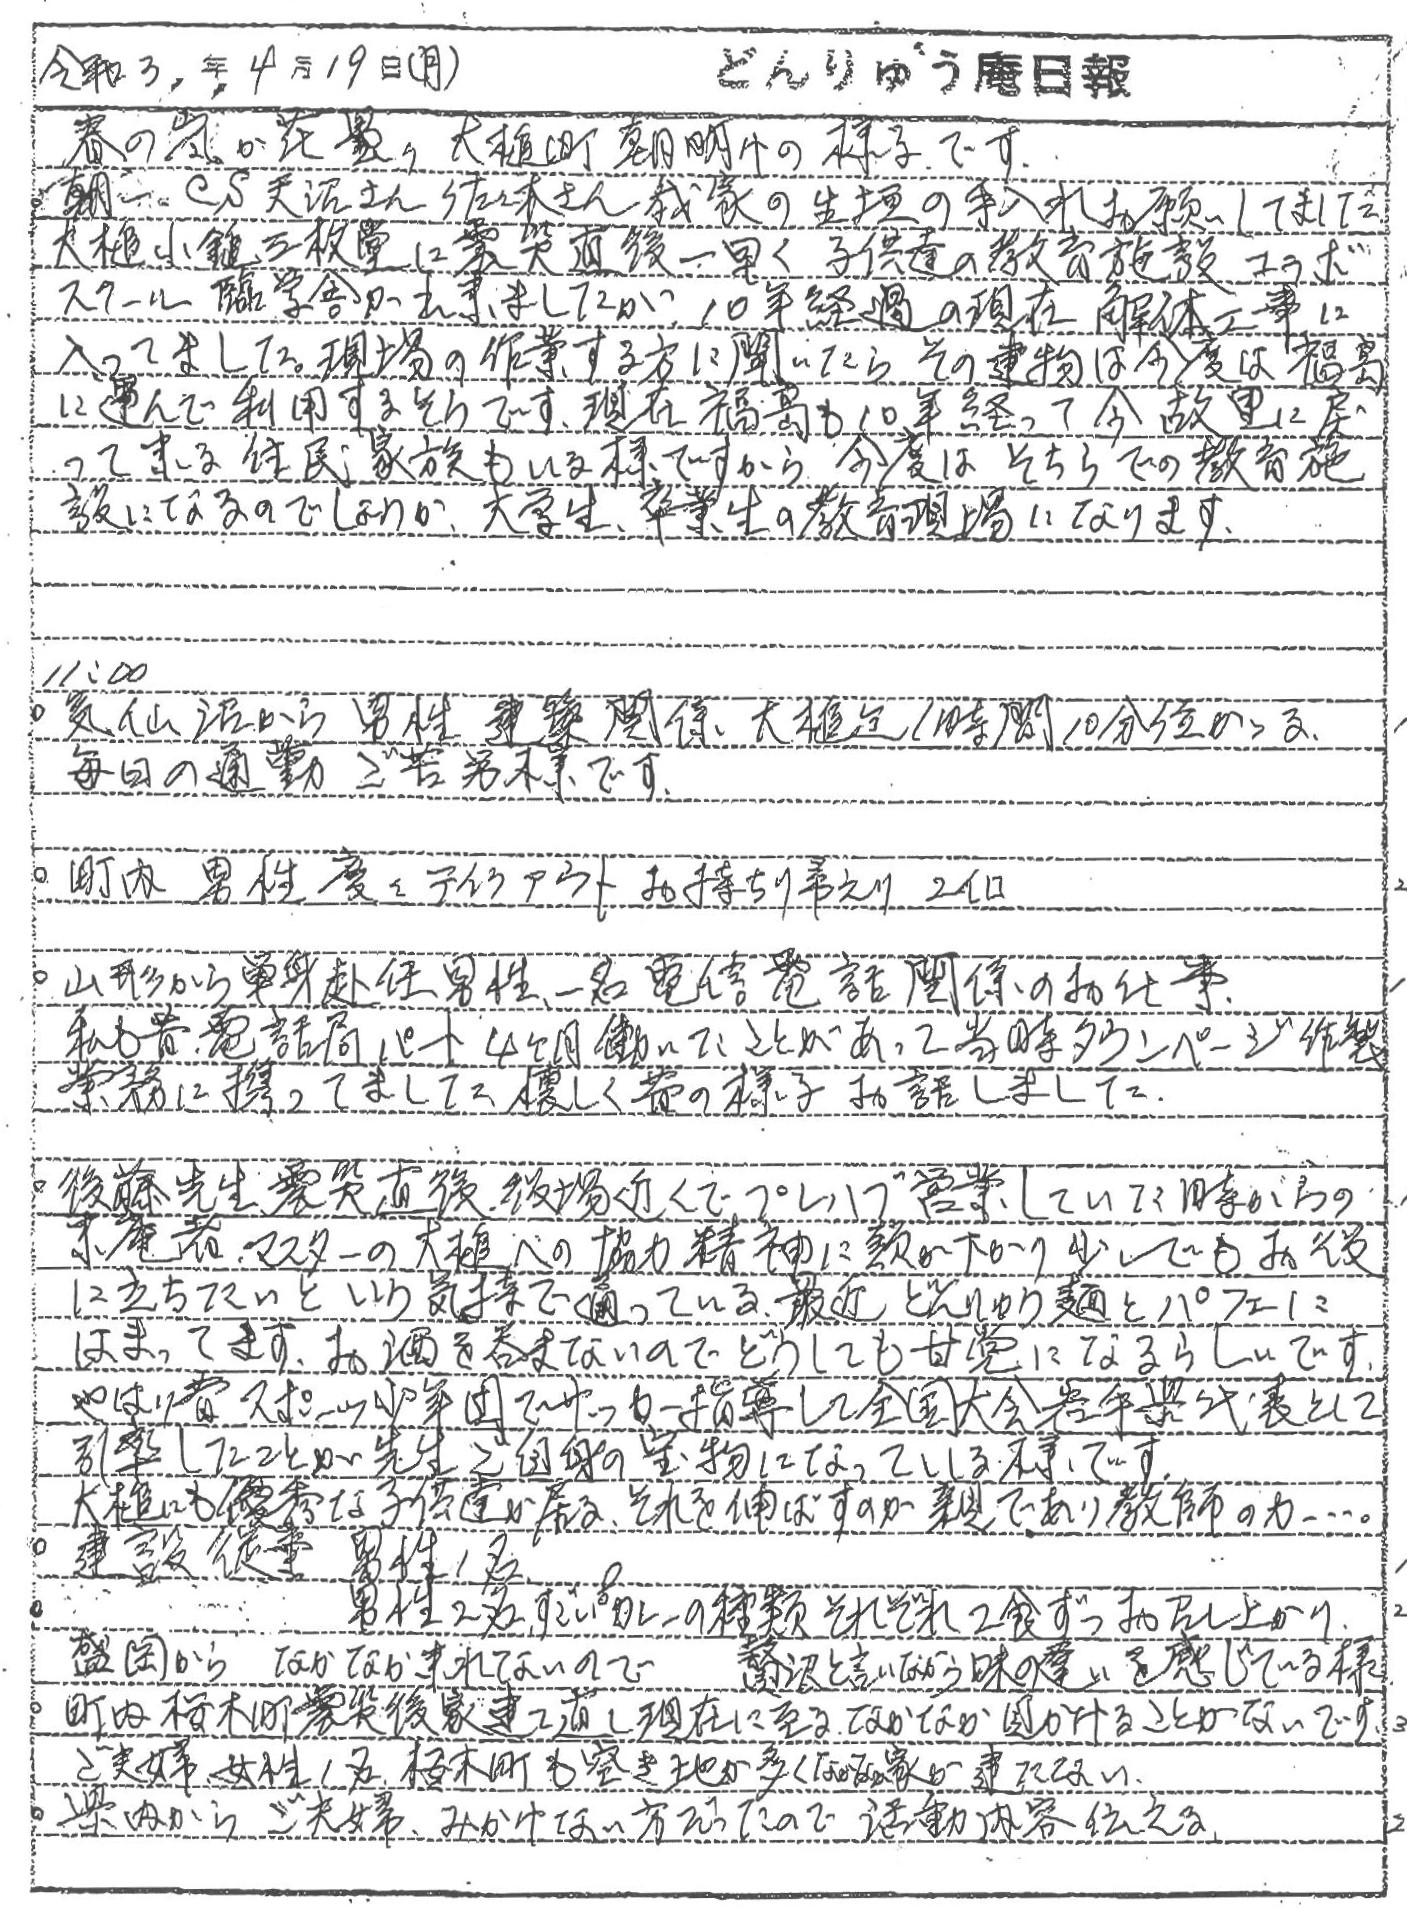 令和3.年4月19日(月) どんりゅう庵日報
春の嵐か花曇り 大槌町朝明けの様子です.
朝一. CS天沼さん 佐々木さん 我家の生垣の手入れお願いしてました
大槌小鎚三枚堂に震災直後一早く子供達の教育施設コラボ
スクール臨学舎が出来ましたが、10年経過の現在 解体工事に
入ってました。現場の作業する方に聞いたら その建物は今度は福島
に運んで利用するそうです.現在福島も10年経って今故里に戻
って来る住民、家族もいる様ですから、今度は そちらでの教育施
設になるのでしょうか、大学生、卒業生の教育現場になります.
11:00
○気仙沼から 男性 建築関係、大槌迄1時間10分位かかる. 1
毎日の通勤 ご苦労様です.
○町内 男性 度々テイクアウト お持ち帰り 2個 2
○山形から単身赴任男性、一名電信電話関係のお仕事. 1
私も昔.電話局パート4ヶ月働いたことがあって当時タウンページ作製
業務に携ってました、懐しく昔の様子お話しました.
○後藤先生.震災直後.役場近くでプレハブ営業していた時からの 1
来庵者.マスターの大槌への協力精神に頭が下がり少しでもお役
に立ちたいという気持で通っている.最近どんりゅう麺とパフェに
はまってます.お酒を呑まないのでどうしても甘党になるらしいです.
やはり昔スポーツ少年団でサッカー指導して全国大会岩手県代表として
引率したことが先生ご自身の宝物になっている様です.
大槌にも優秀な子供達が居る.それを伸ばすのが親であり教師の力…。
○建設従事 男性1名. 1
○ 男性2名.すごいカレーの種類それぞれ2食ずつお召し上がり. 2
盛岡から なかなか来れないので 贅沢と言いながら味の違いを感じている様
○町内桜木町震災後家建て直し現在に至る.なかなか出かけることがないです. 3
ご夫婦.女性1名.桜木町も空き地が多くなかなか家が建たない.
○県内からご夫婦、みかけない方だったので活動内容伝える. 2